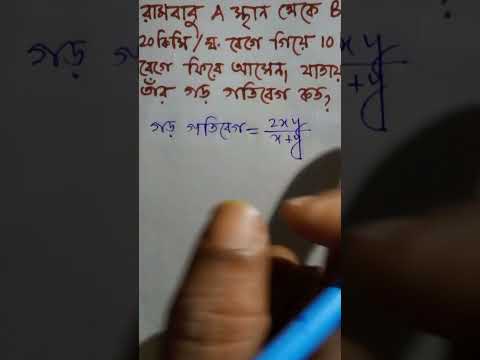 রামবাবু A স্থান থেকে B
20 কিমি/ঘ. বেগে গিয়ে 10
বেগে ফিরে আসেন, যাতায়
তাঁর গড় গতিবেগ কত?
গড় গতিবেগ = 2xy / x+y